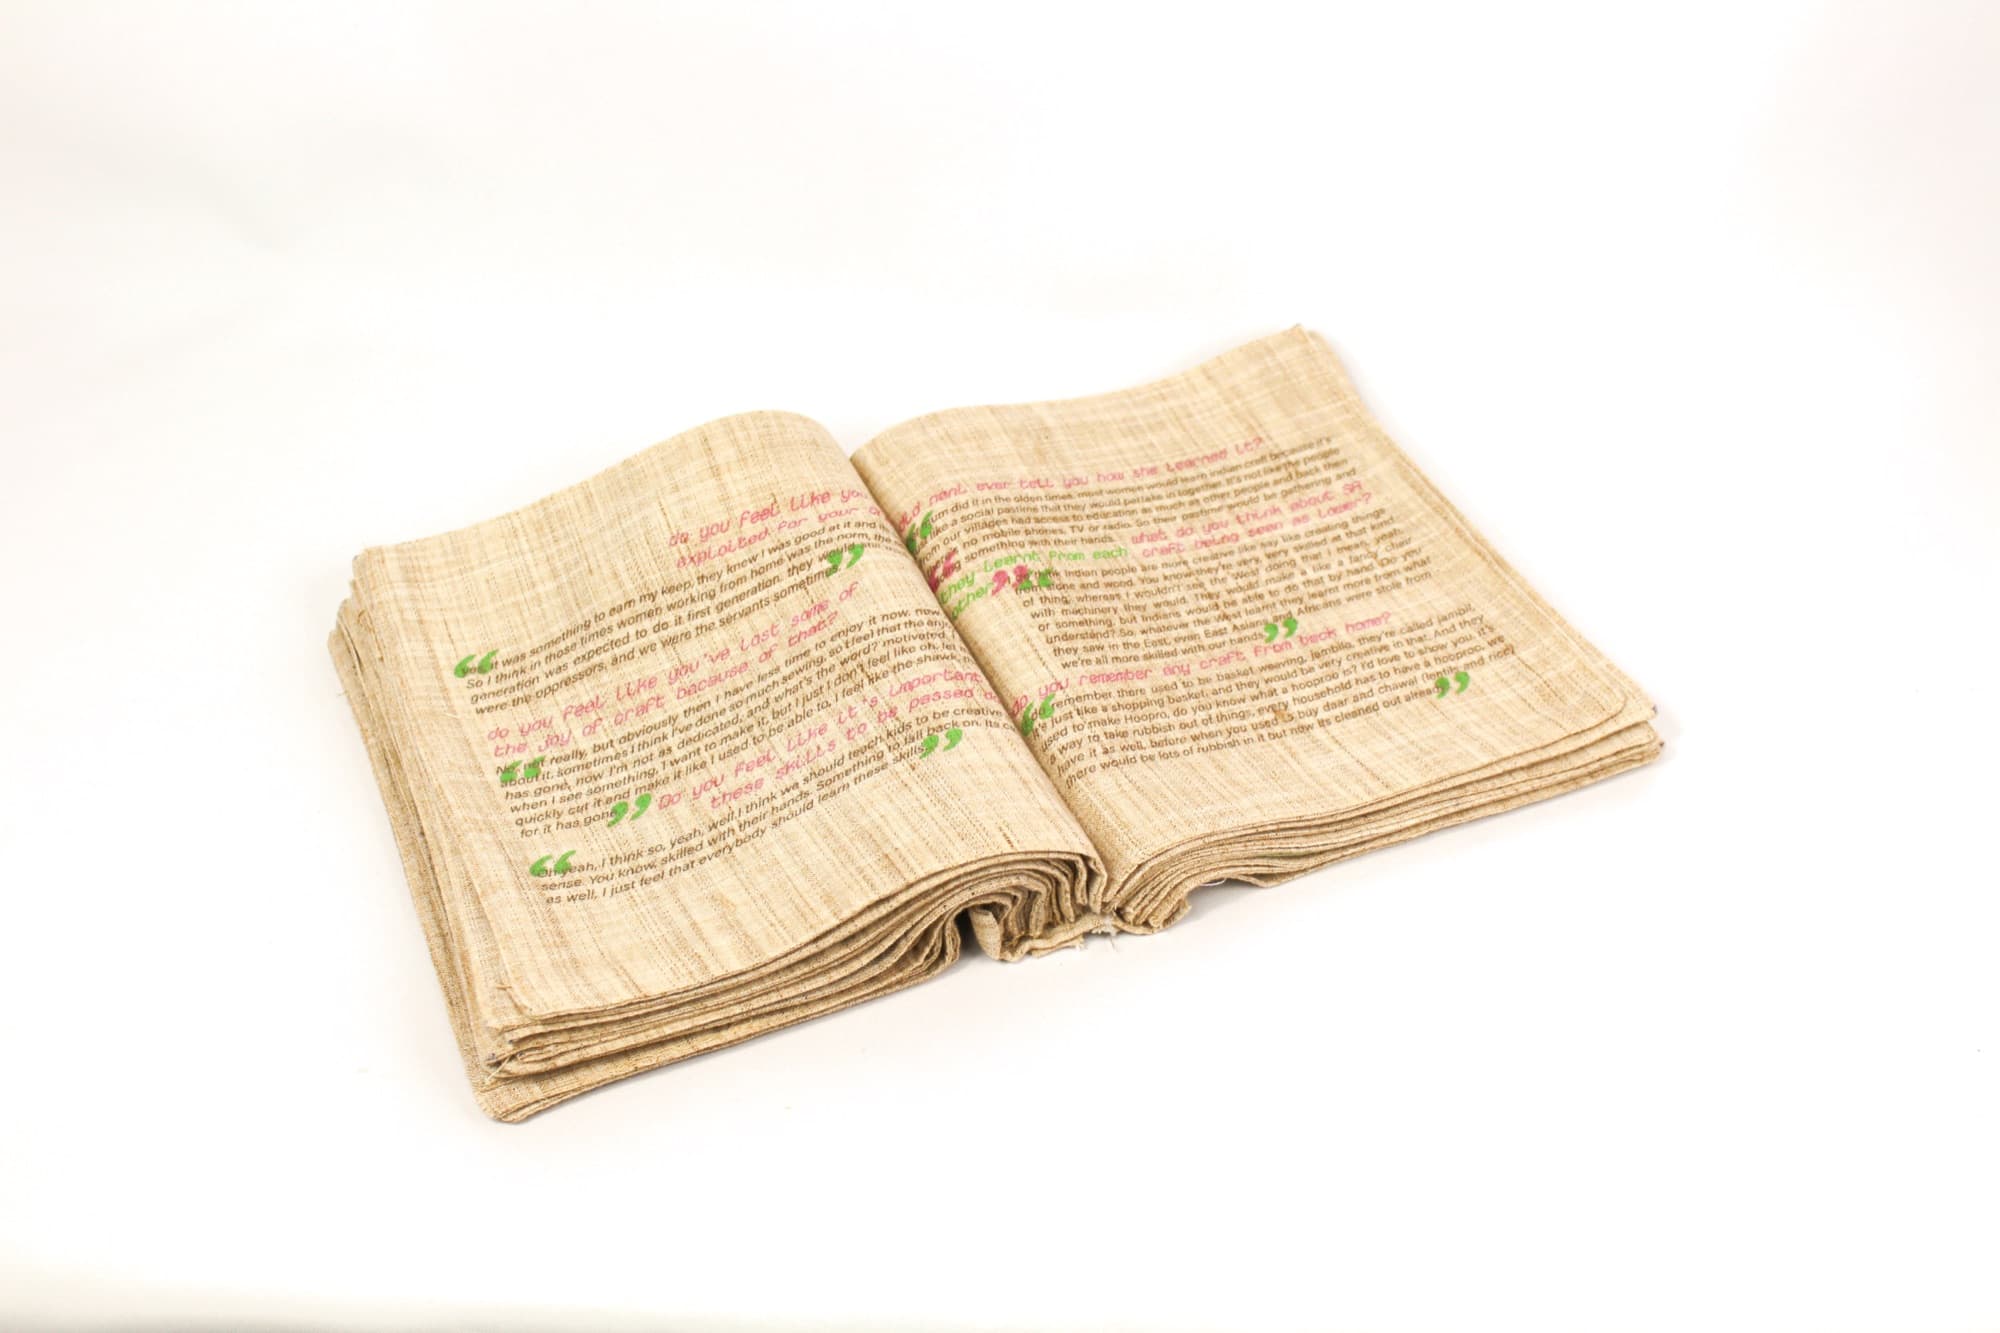 do you feel like you
exploited for your
it was something to earn my keep, they knew I was good at it and
So I think in those times women working from home was the norm, the
generation was expected to do it first generation, they would
were the oppressors, and we were the servants sometimes.
”
“
do you feel like you've lost some of
the joy of craft because of that?
No, not really, but obviously then I have less time to enjoy it now. now
about it. sometimes I think I've done so much sewing, so I feel that the
has gone, now I'm not as dedicated, and what's the word? motivated,
when I see something, I want to make it, but I just I don't feel like oh, let
quickly cut it and make it like I used to be able to. I feel like the
for it has gone
”
“
Do you feel like it's important
these skills to be passed
“
Oh yeah, I think so, yeah, well I think we should teach kids to be creative
sense. You know, skilled with their hands. Something to fall back on. Its
as well, I just feel that everybody should learn these skills
”
nani ever tell you how she learned it?
“
um did it in the olden times, most women would learn indian craft because it's
like a social pastime that they would partake in together. It's not like the people
from our villages had access to education as much as other people and back then
no mobile phones, TV or radio. So their pastime would be gathering and
something with their hands.
“
they learnt from each
other
”
what do you think about SA
craft being seen as lower?
“
think Indian people are more creative like say like creating things
stone and wood. You know they're very skilled at that kind
of thing, whereas I wouldn't see the West doing that I mean, yeah,
with machinery they would. They would make a like a fancy chair
or something, but Indians would be able to do that by hand. Do you
understand? So, whatever the West learnt they learnt more from what
they saw in the East, even East Asians and Africans were stole from
we're all more skilled with our hands
”
do you remember any craft from back home?
“
I do remember, there used to be basket weaving, jambils, they're called jambil,
it's just like a shopping basket, and they would be very creative in that. And they
used to make Hoopro, do you know what a hoopro is? I'd love to show you, it's
a way to take rubbish out of things, every household has to have a hooproc, we
have it as well, before when you used to buy daar and chawal (lentils and rice)
there would be lots of rubbish in it but now its cleaned out already
”